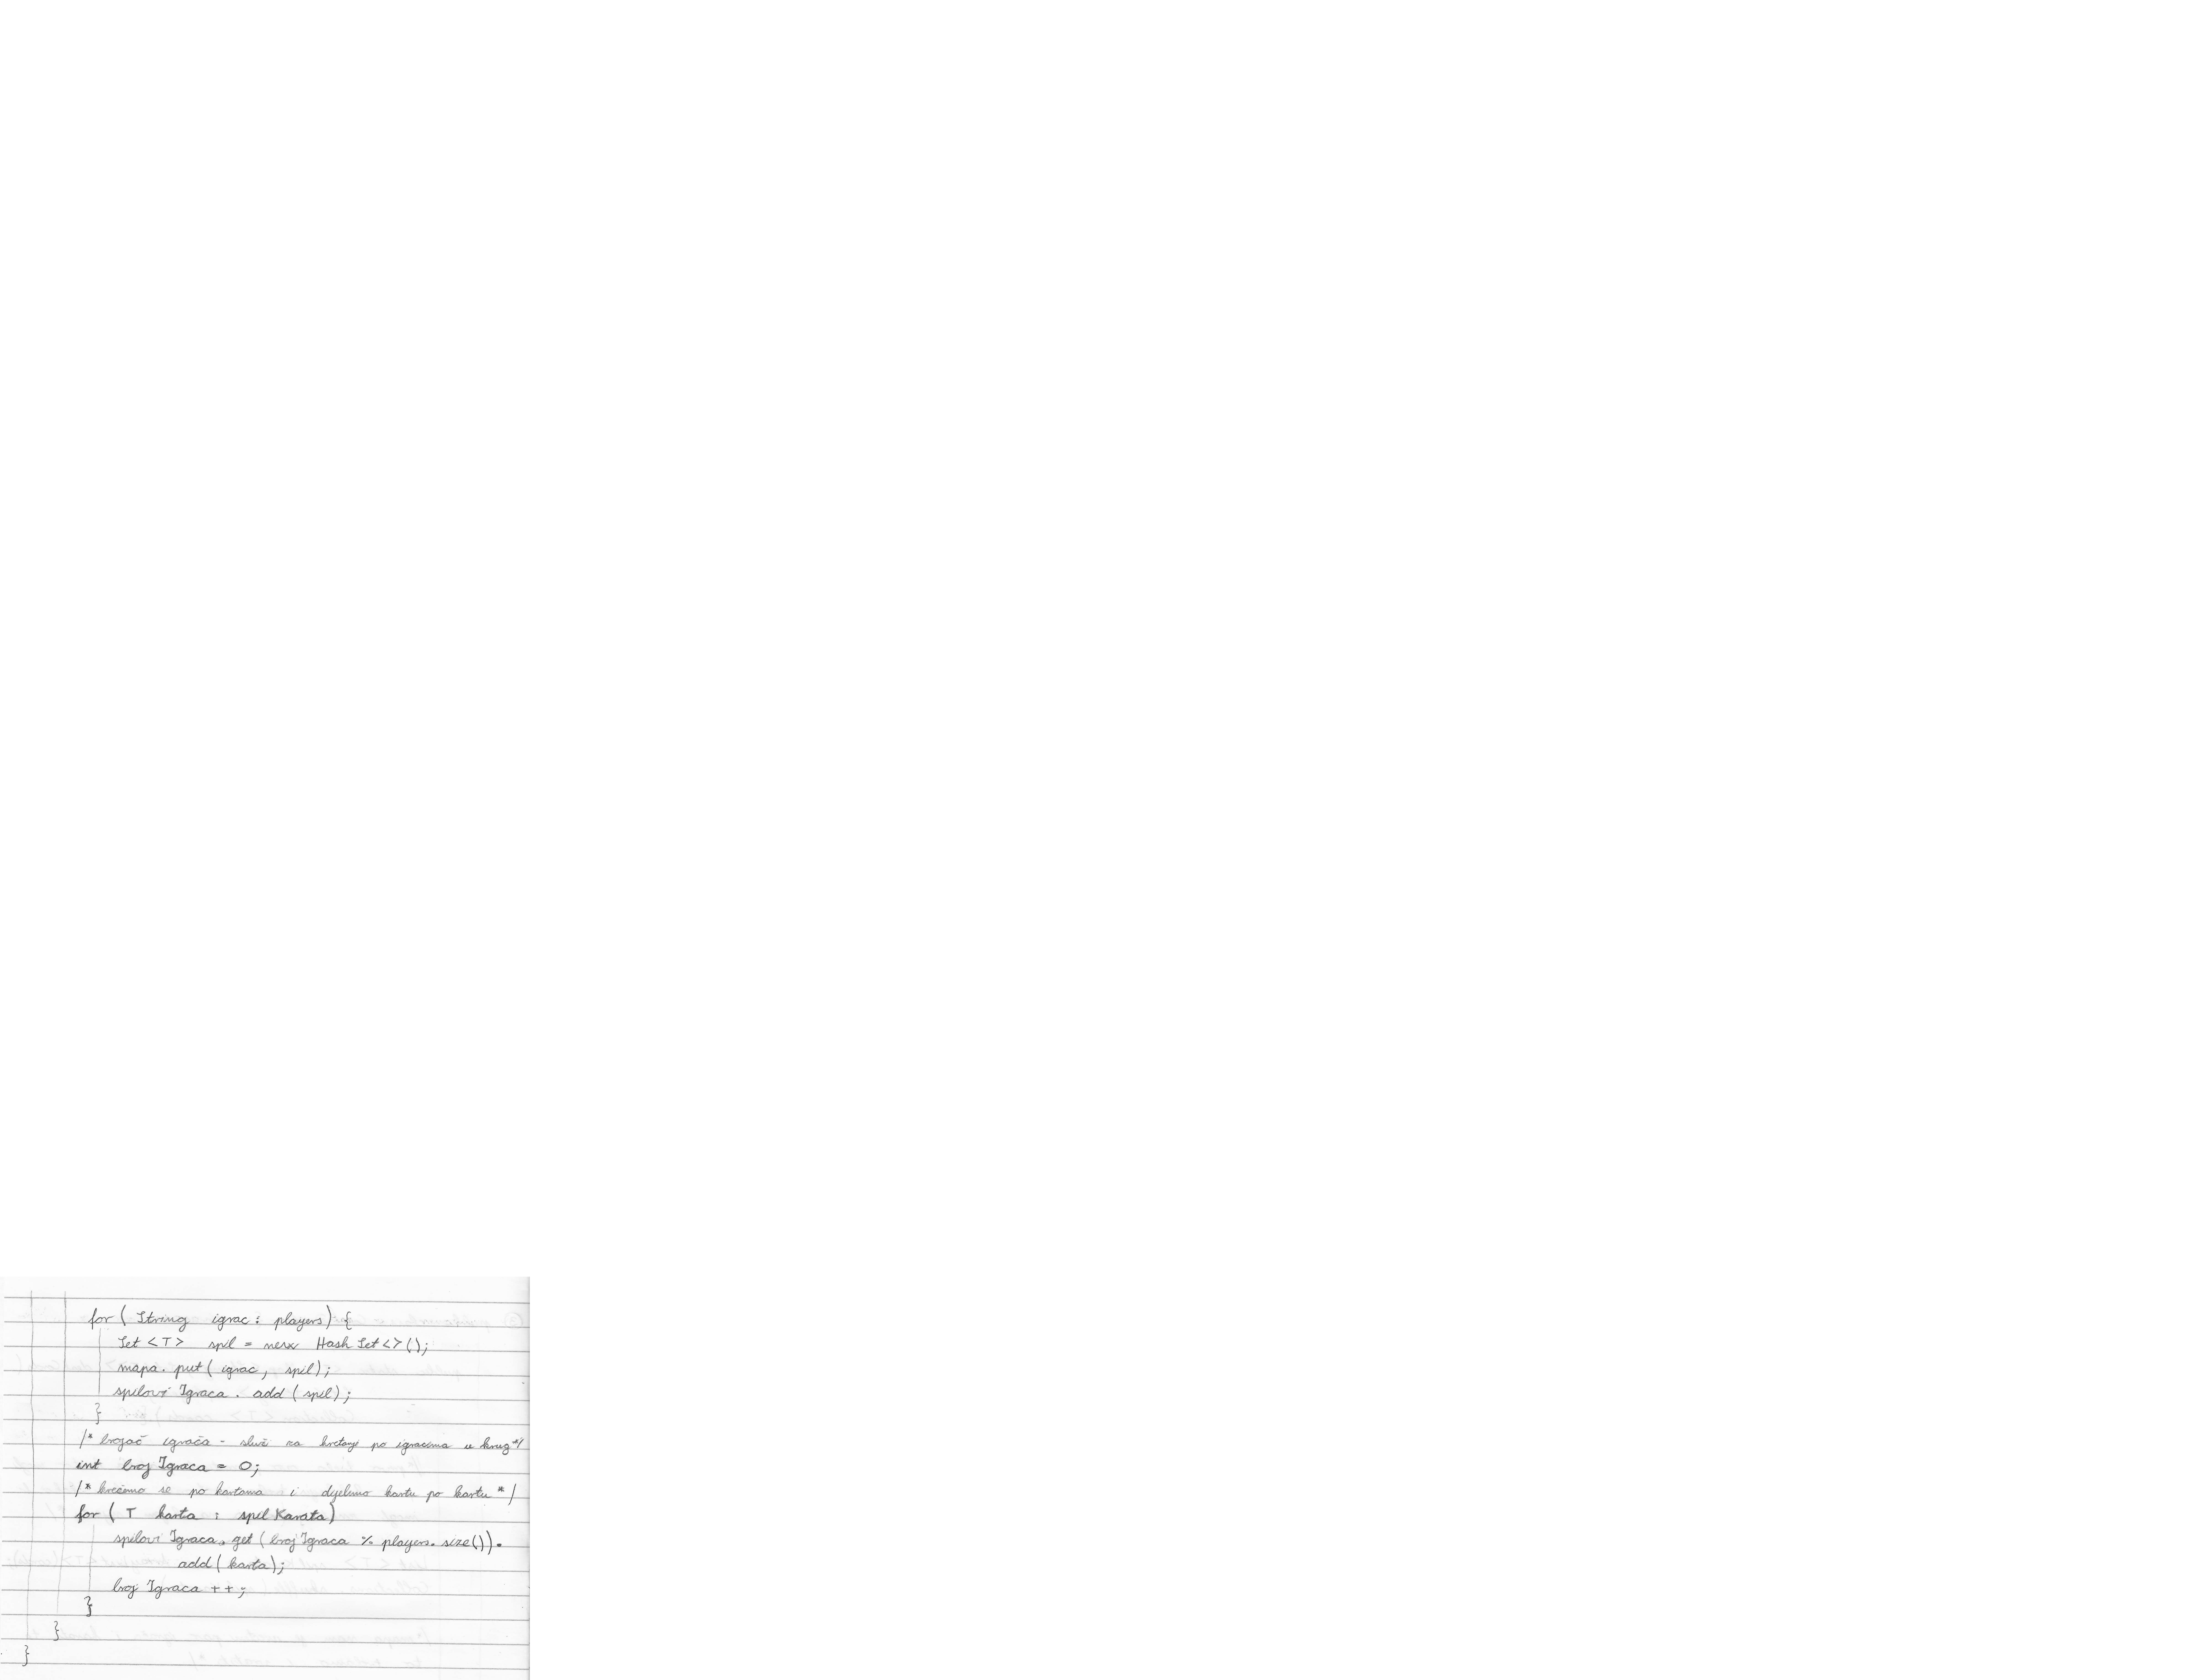 for ( String igrac : players) {
Set <T> spil = new HashSet<>();
mapa. put ( igrac, spil);
spiloviIgraca. add ( spil);
}
/* brojač igrača - služi za kretanje po igracima u krug */
int brojIgraca = 0;
/* krećemo se po kartama i dijelimo kartu po kartu */
for ( T karta : spilKarata)
spiloviIgraca. get ( brojIgraca % players. size()).
add ( karta);
brojIgraca ++;
}
}
}